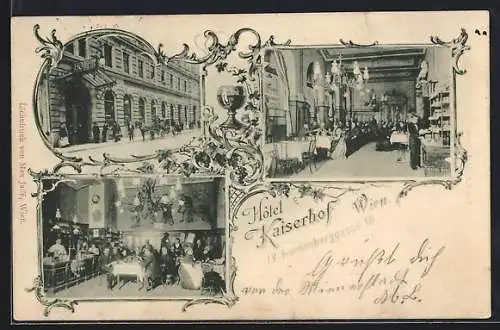 Lichtdruck von Max Jaffé, Wien.
Hôtel
Kaiserhof Wien.
IV. Frankenberggasse 10
Grüßt Dich
von der Wienerstadt